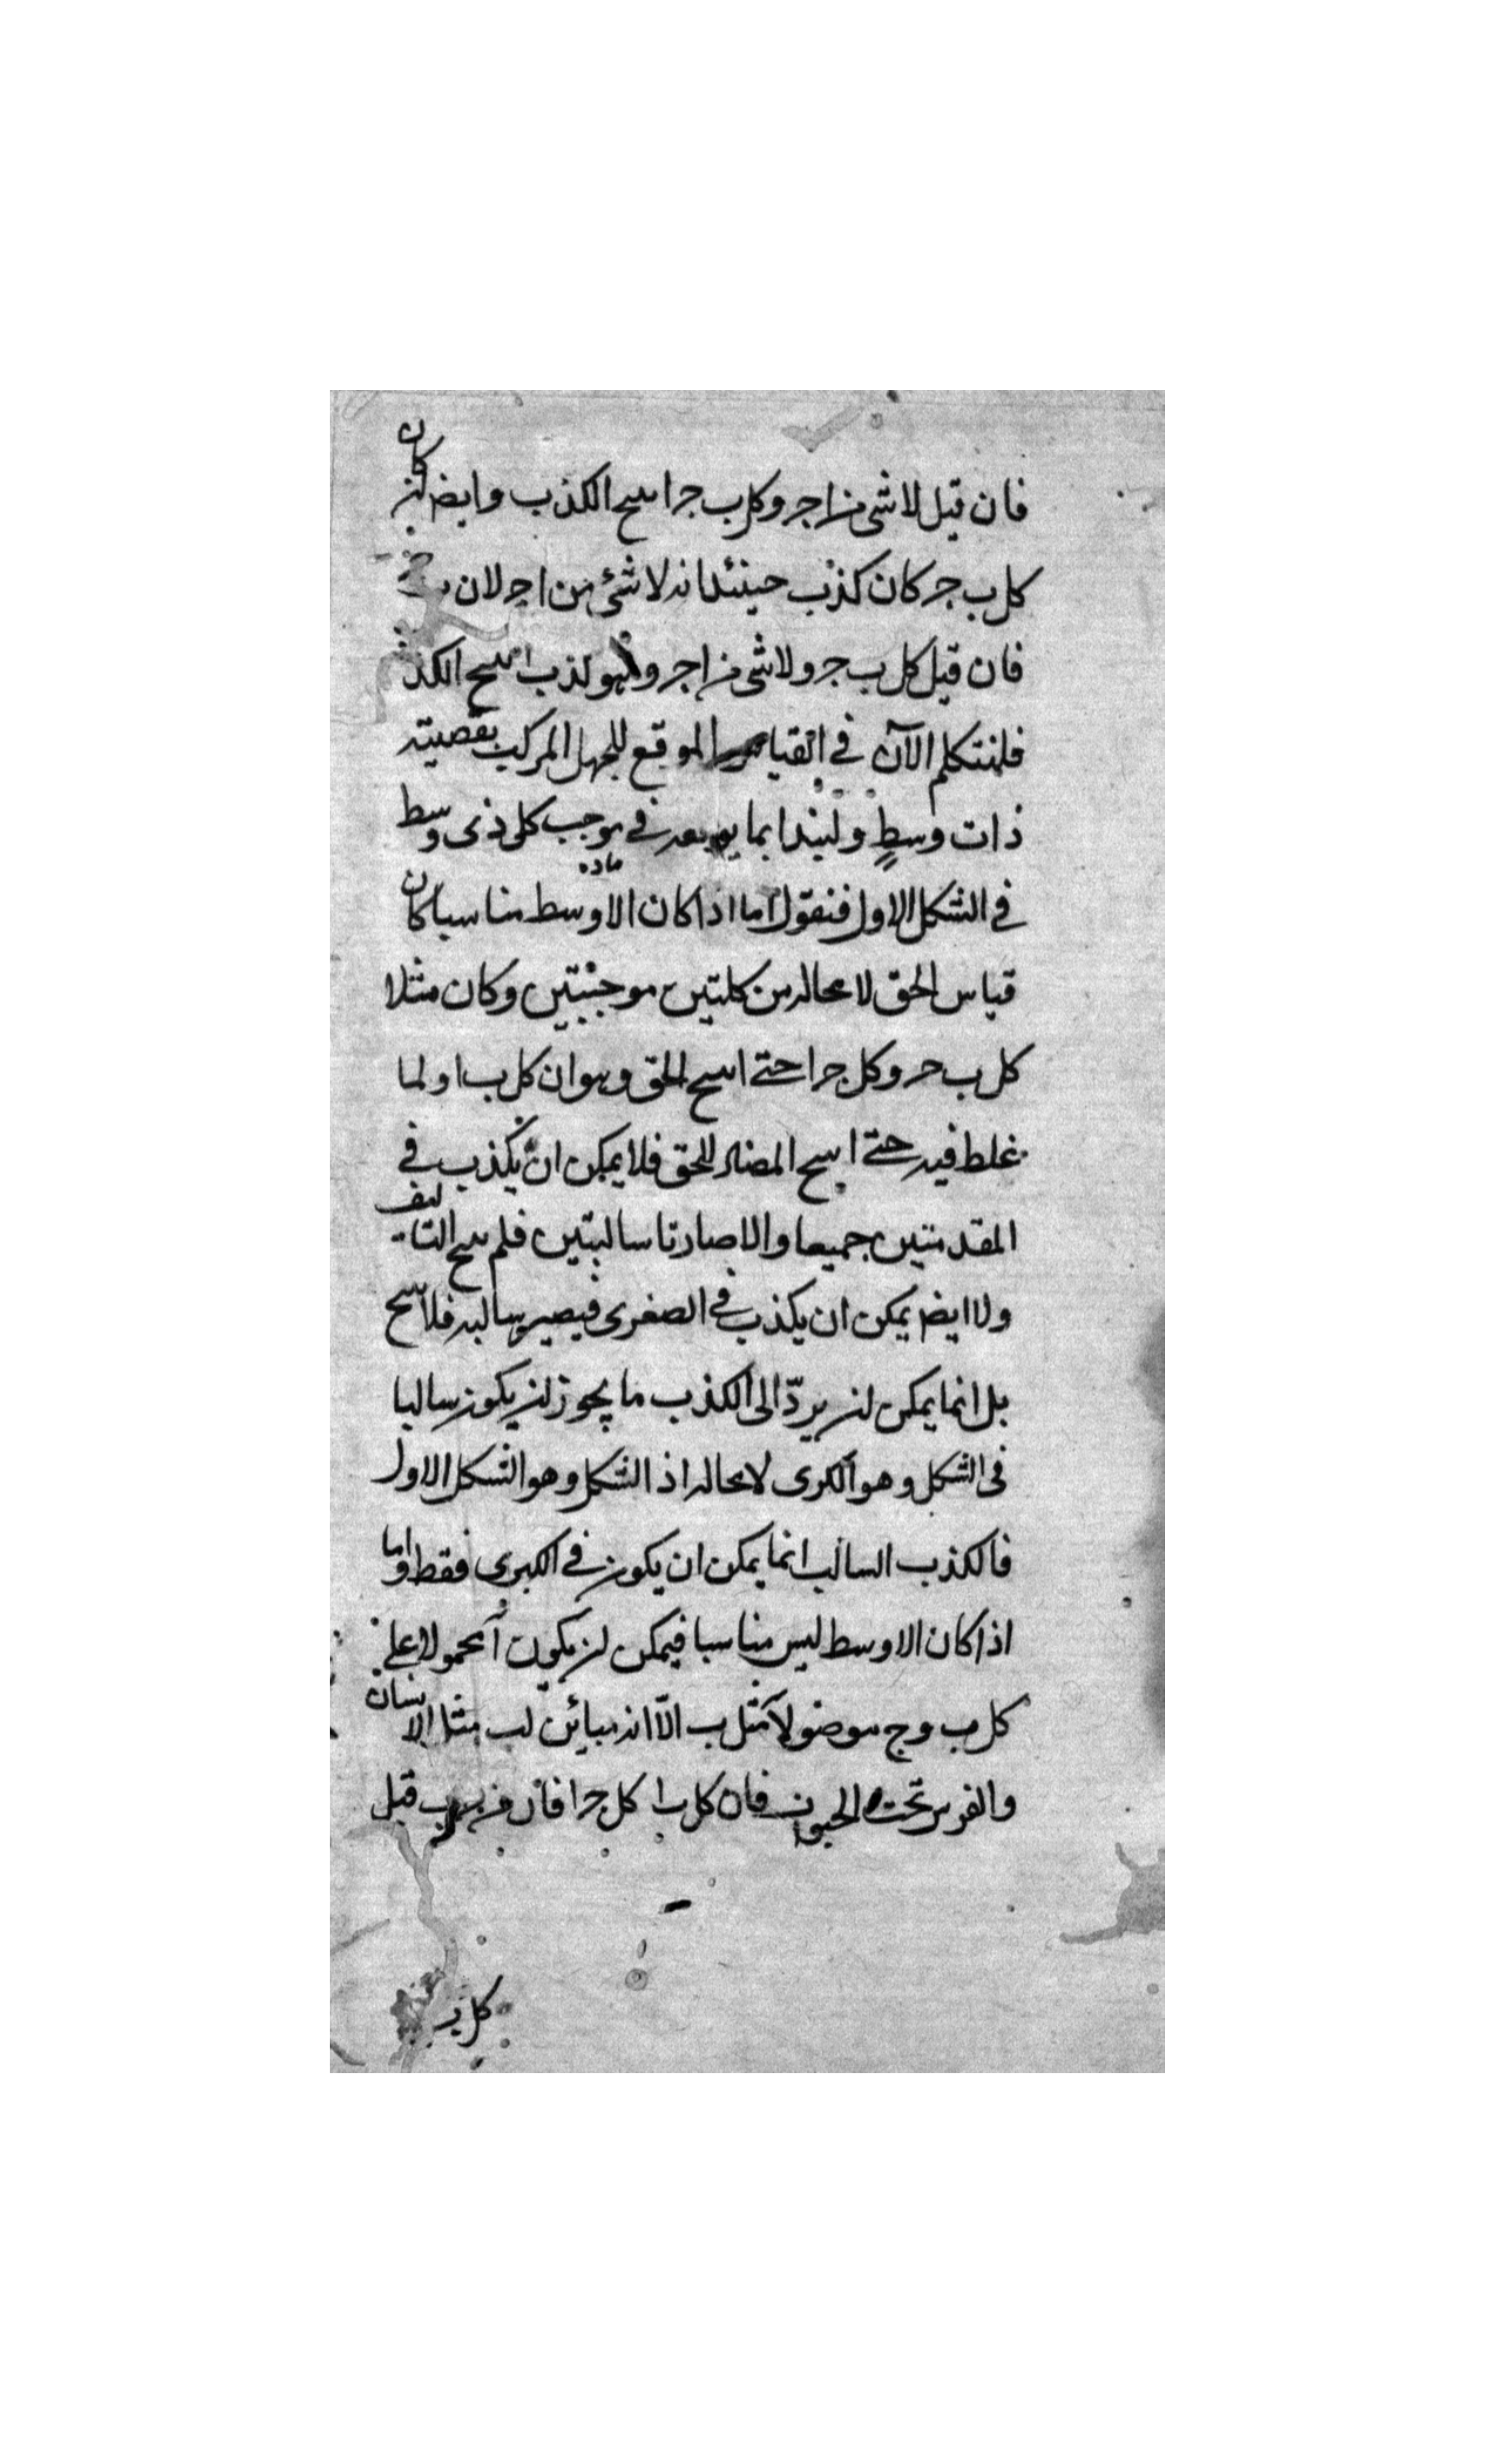 فان قيل لا شى من ا جر وكل ب جر انتج الكذب وايضا لن كان
كل ب جر كان كذب حينئذ انه لا شئ من ا جر لان
فان قيل كل ب جر ولا شى من ا جر وهو كذب انتج الكذب
فلنتكلم الآن في القياس الموقع للجهل المركب بقضية
ذات وسط وليبدا بما في موجب كلى ذى وسط
في الشكل الاول فنقول اما اذا كان ماده الاوسط مناسبا كان
قياس الحق لا محاله من كليتين موجبتين وكان مثلا
كل ب حر وكل جر ا حتى انتج الحق وهو ان كل ب ا ولما
غلط فيه حتى انتج المضاد للحق فلا يمكن ان يكذب في
المقدمتين جميعا والا صارتا سالبتين فلم ينتج التاليف
ولا ايضا يمكن ان يكذب في الصغرى فيصير سالبه فلا ينتج
بل انما يمكن لن يردّ الى الكذب ما يجوز لن يكون سالبا
فى الشكل وهو الكبرى لا محاله اذ الشكل وهو الشكل الاول
فالكذب السالب انما يمكن ان يكون في الكبرى فقط واما
اذا كان الاوسط ليس مناسبا فيمكن لن يكون آ محمولا على
كل ب وج موضولا مثل ب الّا انه مبائن لب مثل الانسان
والفرس تحت الحيوان فان كل ب ا كل جر ا فان قيل
كل ب